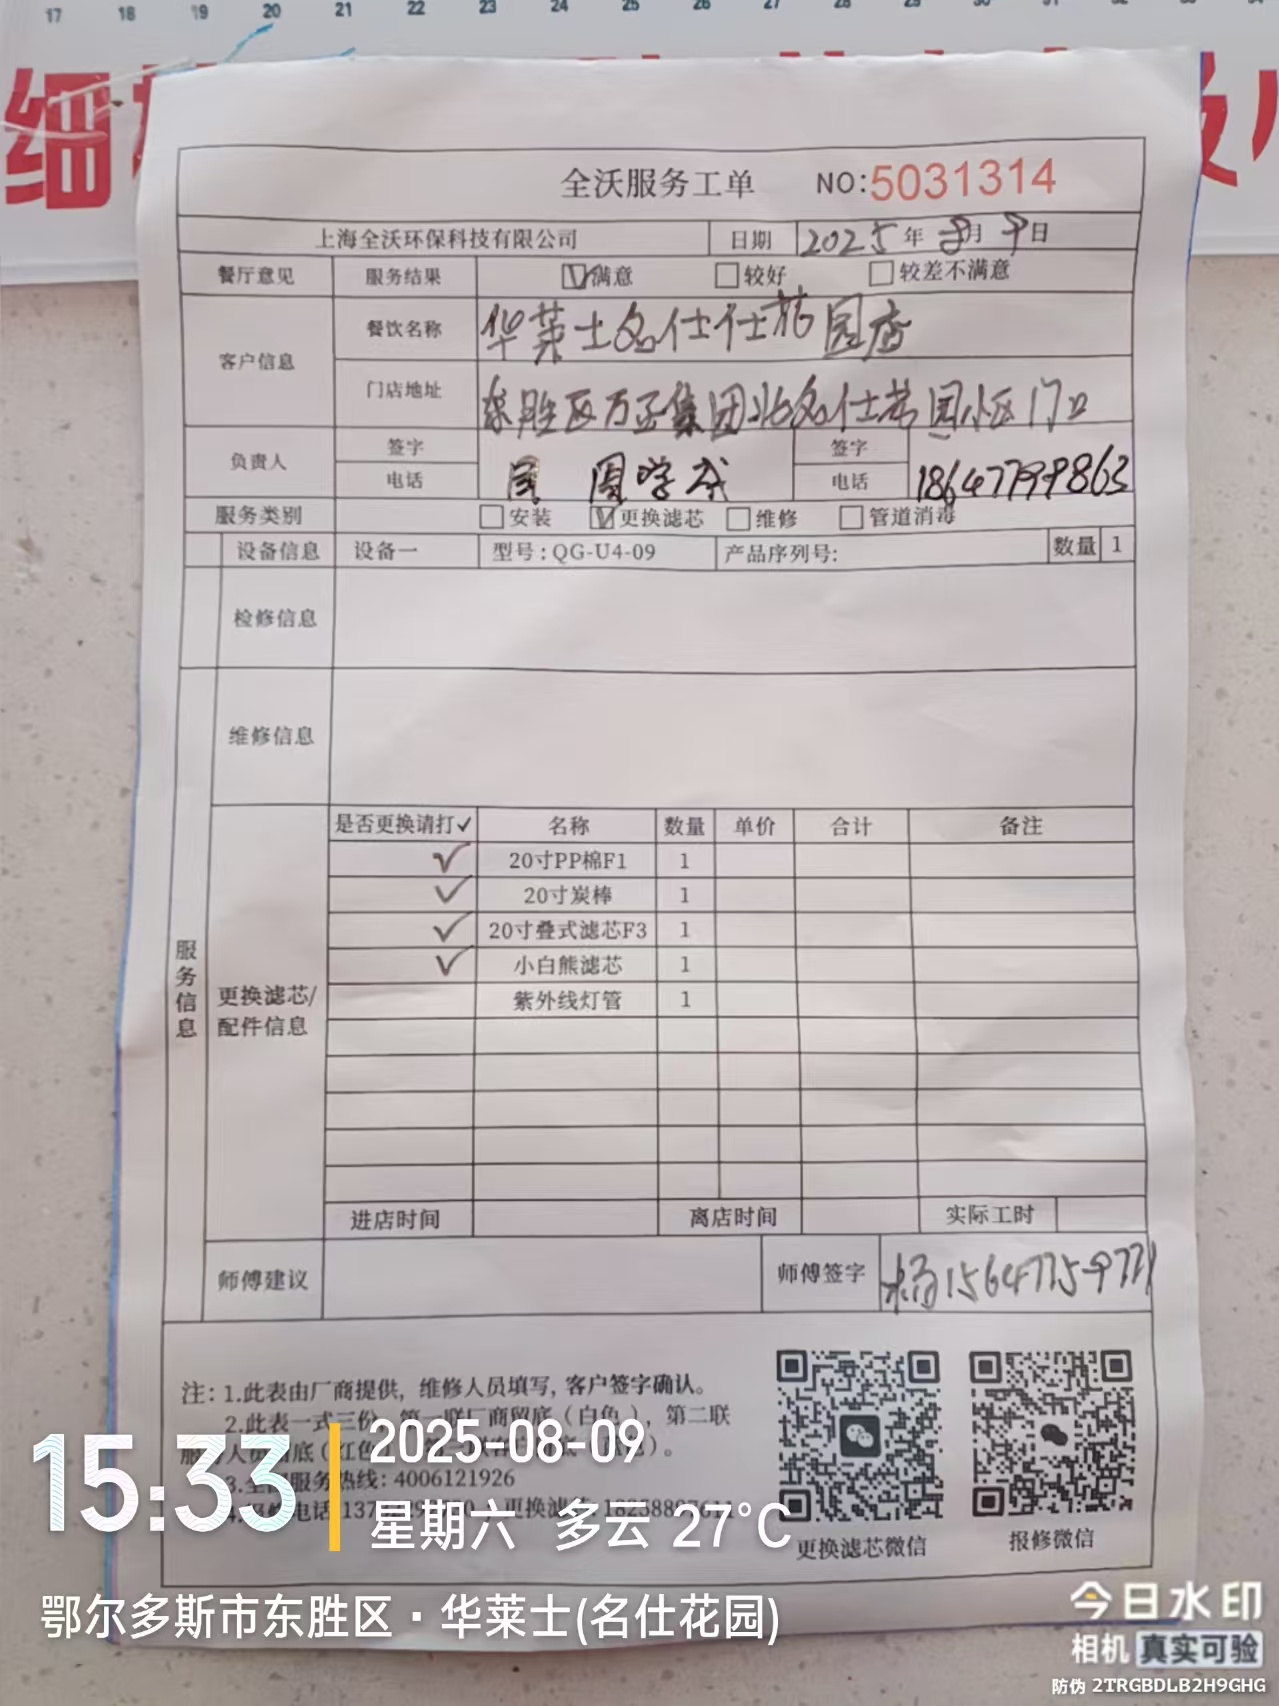 17 18 19 20 21 22 23 24 25 26 27 28 29 30 31 32 33 34
细
全沃服务工单 NO:5031314
上海全沃环保科技有限公司 日期 2025年8月9日
餐厅意见 服务结果 ☑满意 □较好 □较差不满意
客户信息 餐饮名称 华莱士名仕仕花园店
门店地址 东胜区万正集团北名仕花园小区门口
负责人 签字 周学成 签字
电话 电话 18647799863
服务类别 □安装 ☑更换滤芯 □维修 □管道消毒
设备信息 设备一 型号:QG-U4-09 产品序列号: 数量 1
检修信息
维修信息
服务信息
更换滤芯/
配件信息
是否更换请打✓ 名称 数量 单价 合计 备注
✓ 20寸PP棉F1 1
✓ 20寸炭棒 1
✓ 20寸叠式滤芯F3 1
✓ 小白熊滤芯 1
紫外线灯管 1
进店时间 离店时间 实际工时
师傅建议 师傅签字 杨
注: 1.此表由厂商提供, 维修人员填写, 客户签字确认。
2.此表一式三份, 第一联厂商留底(白色), 第二联
服务人员留底(红色
服务热线: 4006121926
更换滤芯微信 报修微信
15:33
2025-08-09
星期六 多云 27°C
鄂尔多斯市东胜区·华莱士(名仕花园)
今日水印
相机 真实可验
防伪 2TRGBDLB2H9GHG